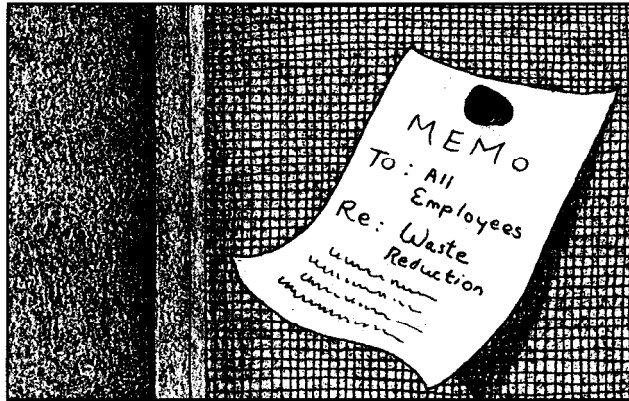 MEMO
To: All
Employees
Re: Waste
Reduction